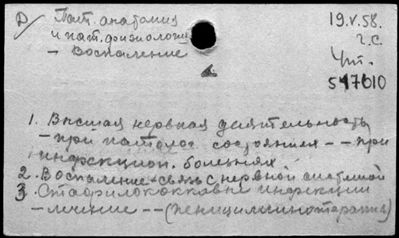 Д/ Пат. анатомия
19.V.58.
и пат. физиология
г.С.
— Воспаление
Чит.
547610
1. Высшая нервная деятельность
— при патолог. состояниях — — при
инфекцион. болезнях
2. Воспаление - связь с нервной системой
3. Стафилококковые инфекции
— лечение — — (пенициллинотерапия)